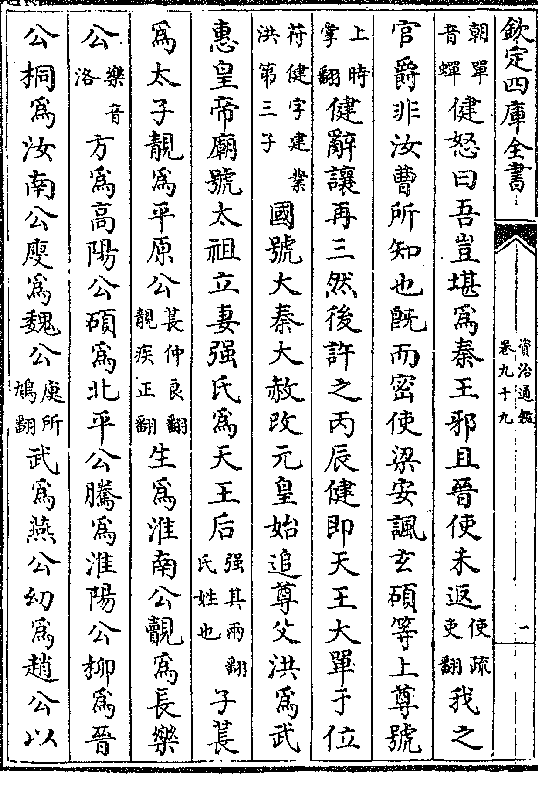 欽定四庫全書
資治通鑑
卷九十九
一
朝單音蟬健怒曰吾豈堪爲秦王邪且晉使未返使疏吏翻我之
官爵非汝曹所知也旣而密使梁安諷玄碩等上尊號
上時掌翻健辭讓再三然後許之丙辰健即天王大單于位
苻健字建業洪第三子國號大秦大赦改元皇始追尊父洪爲武
惠皇帝廟號太祖立妻强氏爲天王后强其兩翻氏姓也子萇
爲太子靚爲平原公萇仲良翻靚疾正翻生爲淮南公覿爲長樂
公樂音洛方爲高陽公碩爲北平公騰爲淮陽公柳爲晉
公桐爲汝南公廋爲魏公廋所鳩翻武爲燕公幼爲趙公以